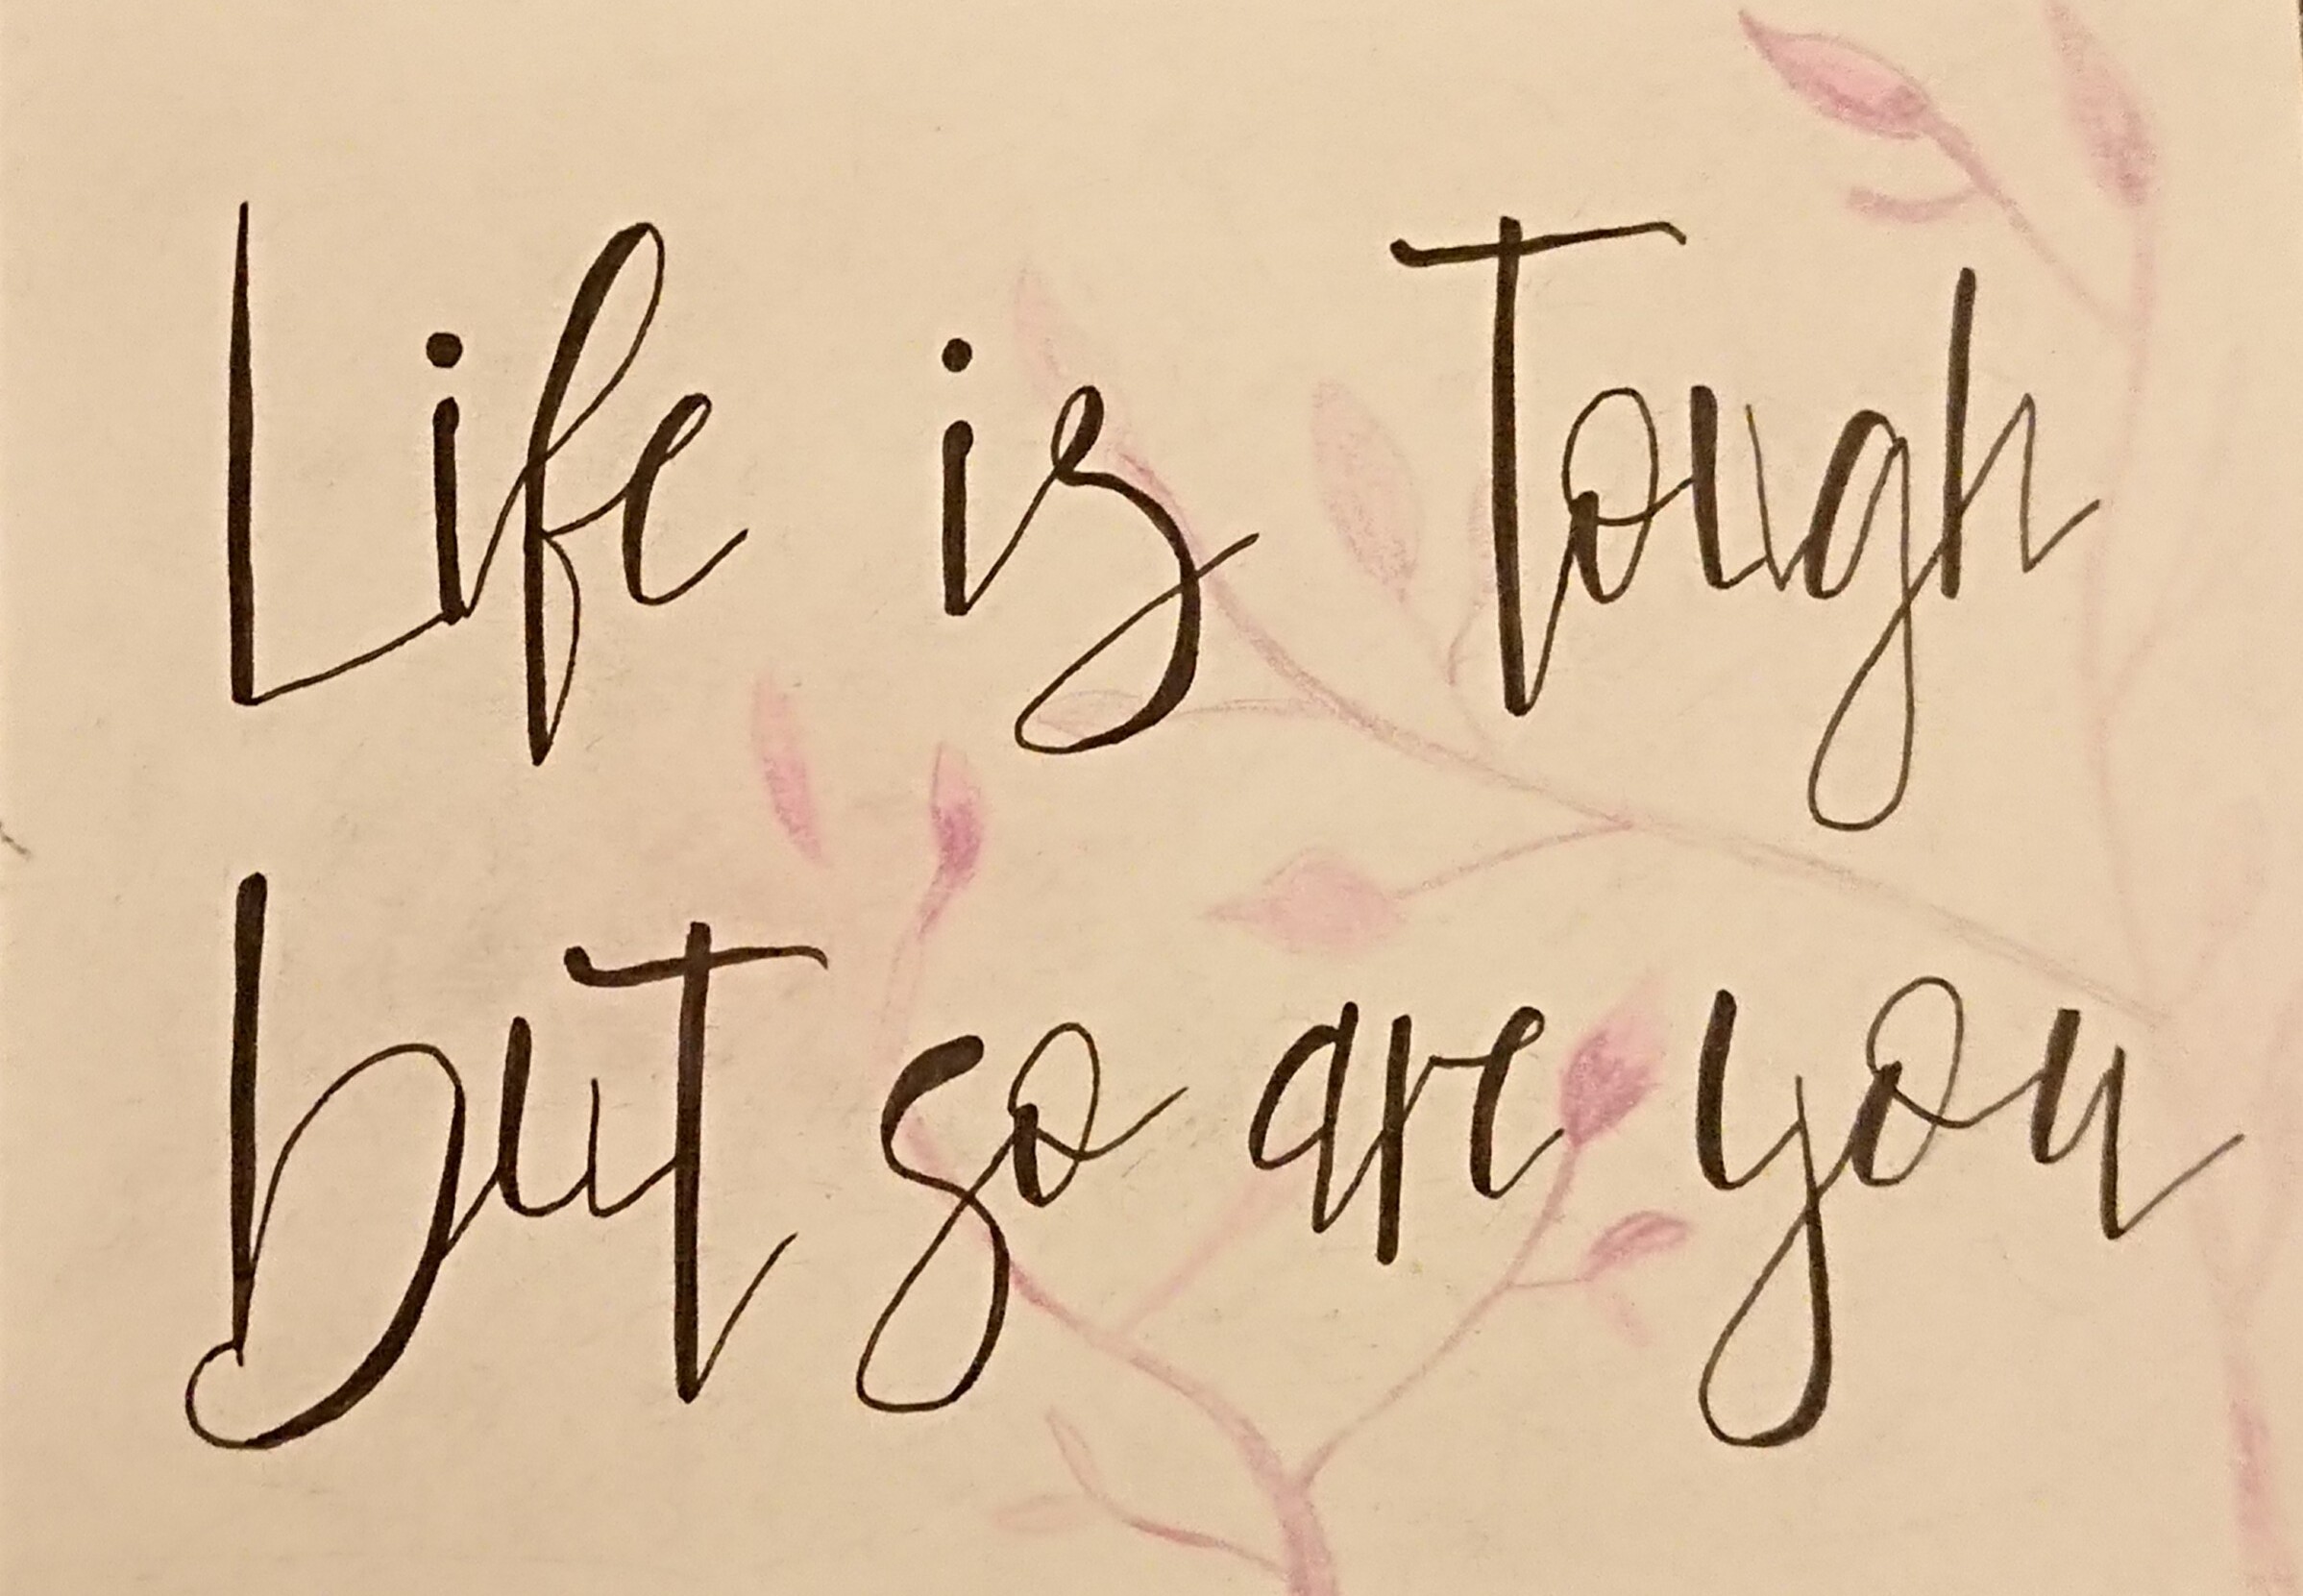 Life is Tough
but so are you